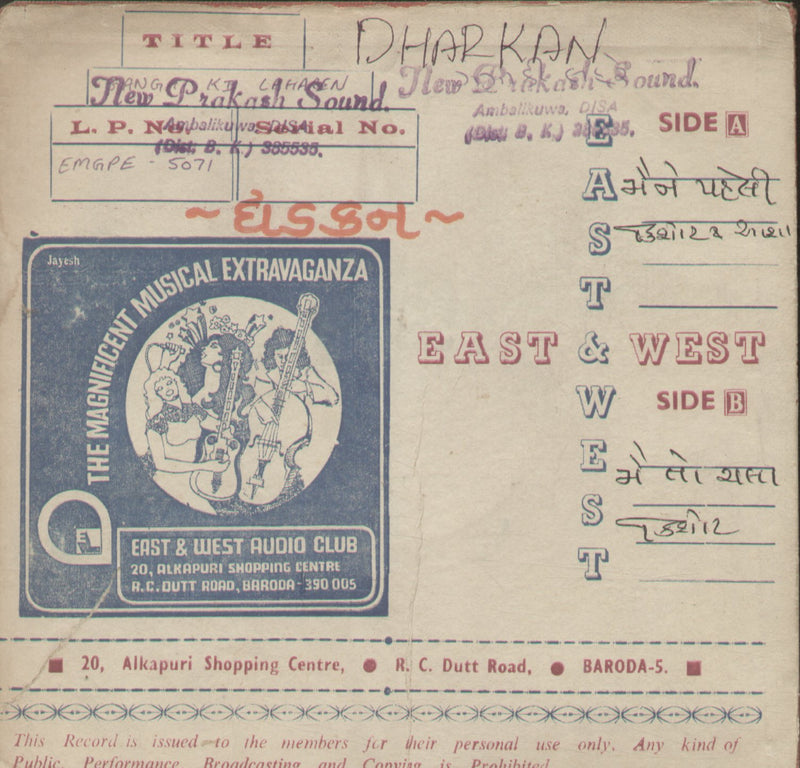 TITLE
DHARKAN
GANG KI LAHAREN
New Prakash Sound.
Ambalikuwa, DISA
(Dist: B. K.) 385535.
New Prakash Sound.
Ambalikuwa, DISA
(Dist: B. K.) 385535.
L. P. No. Serial No.
EMGPE - 5071
~ ધડકન ~
SIDE A
મૈને પહેલી
કિશોર & આશા
EAST & WEST
EAST & WEST
SIDE B
મૈ તો ચલા
કિશોર
Jayesh
THE MAGNIFICENT MUSICAL EXTRAVAGANZA
EAST & WEST AUDIO CLUB
20, ALKAPURI SHOPPING CENTRE
R.C. DUTT ROAD, BARODA-390 005
20, Alkapuri Shopping Centre, R. C. Dutt Road, BARODA-5.
This Record is issued to the members for their personal use only. Any kind of
Public, Performance, Broadcasting and Copying is Prohibited